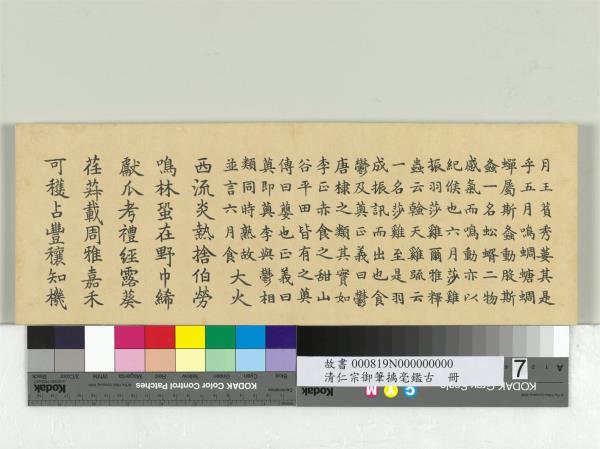 月王萯秀葽其是
乎五月鳴蜩螗蜩
蟬屬斯螽動股斯
螽一名蚣蝑二物
感氣而鳴動亦以
紀候也六月莎雞
振羽莎雞爾雅釋
蟲云螒天雞疏云
一名莎雞至是羽
成振訊而出也食
鬱及薁正義曰鬱
唐棣之類其實如
李正赤食之甜山
谷平田皆有之薁
傳曰蘡也正義曰
薁即薁李與鬱相
類同時熟故
並言六月食
大火
西流炎熱捨伯勞
鳴林蛩在野巾絺
獻瓜考禮經露葵
荏菽載周雅嘉禾
可穫占豐穰知機
故書 000819N000000000
清仁宗御筆摛毫鑑古 冊
7
Kodak
KODAK Color Control Patches
Blue Cyan Green Yellow Red Magenta White 3/Color Black
KODAK Gray Scale
Kodak
C Y M
A 1 2